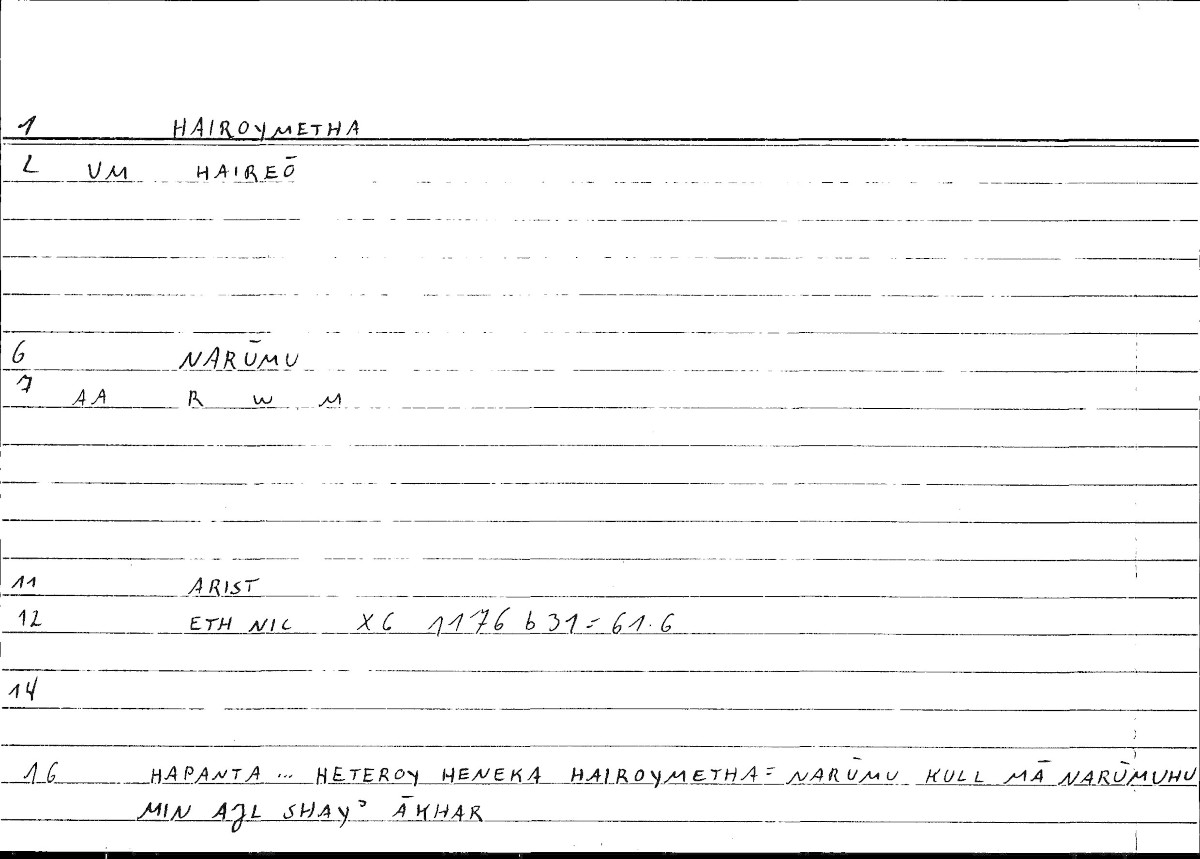 1 HAIROYMETHA
2 VM HAIREŌ
6 NARŪMU
7 AA R W M
11 ARIST
12 ETH NIC X6 1176 b 31 = 61.6
14
16 HAPANTA ... HETEROY HENEKA HAIROYMETHA = NARŪMU KULL MĀ NARŪMUHU
MIN AJL SHAYʾ ĀKHAR